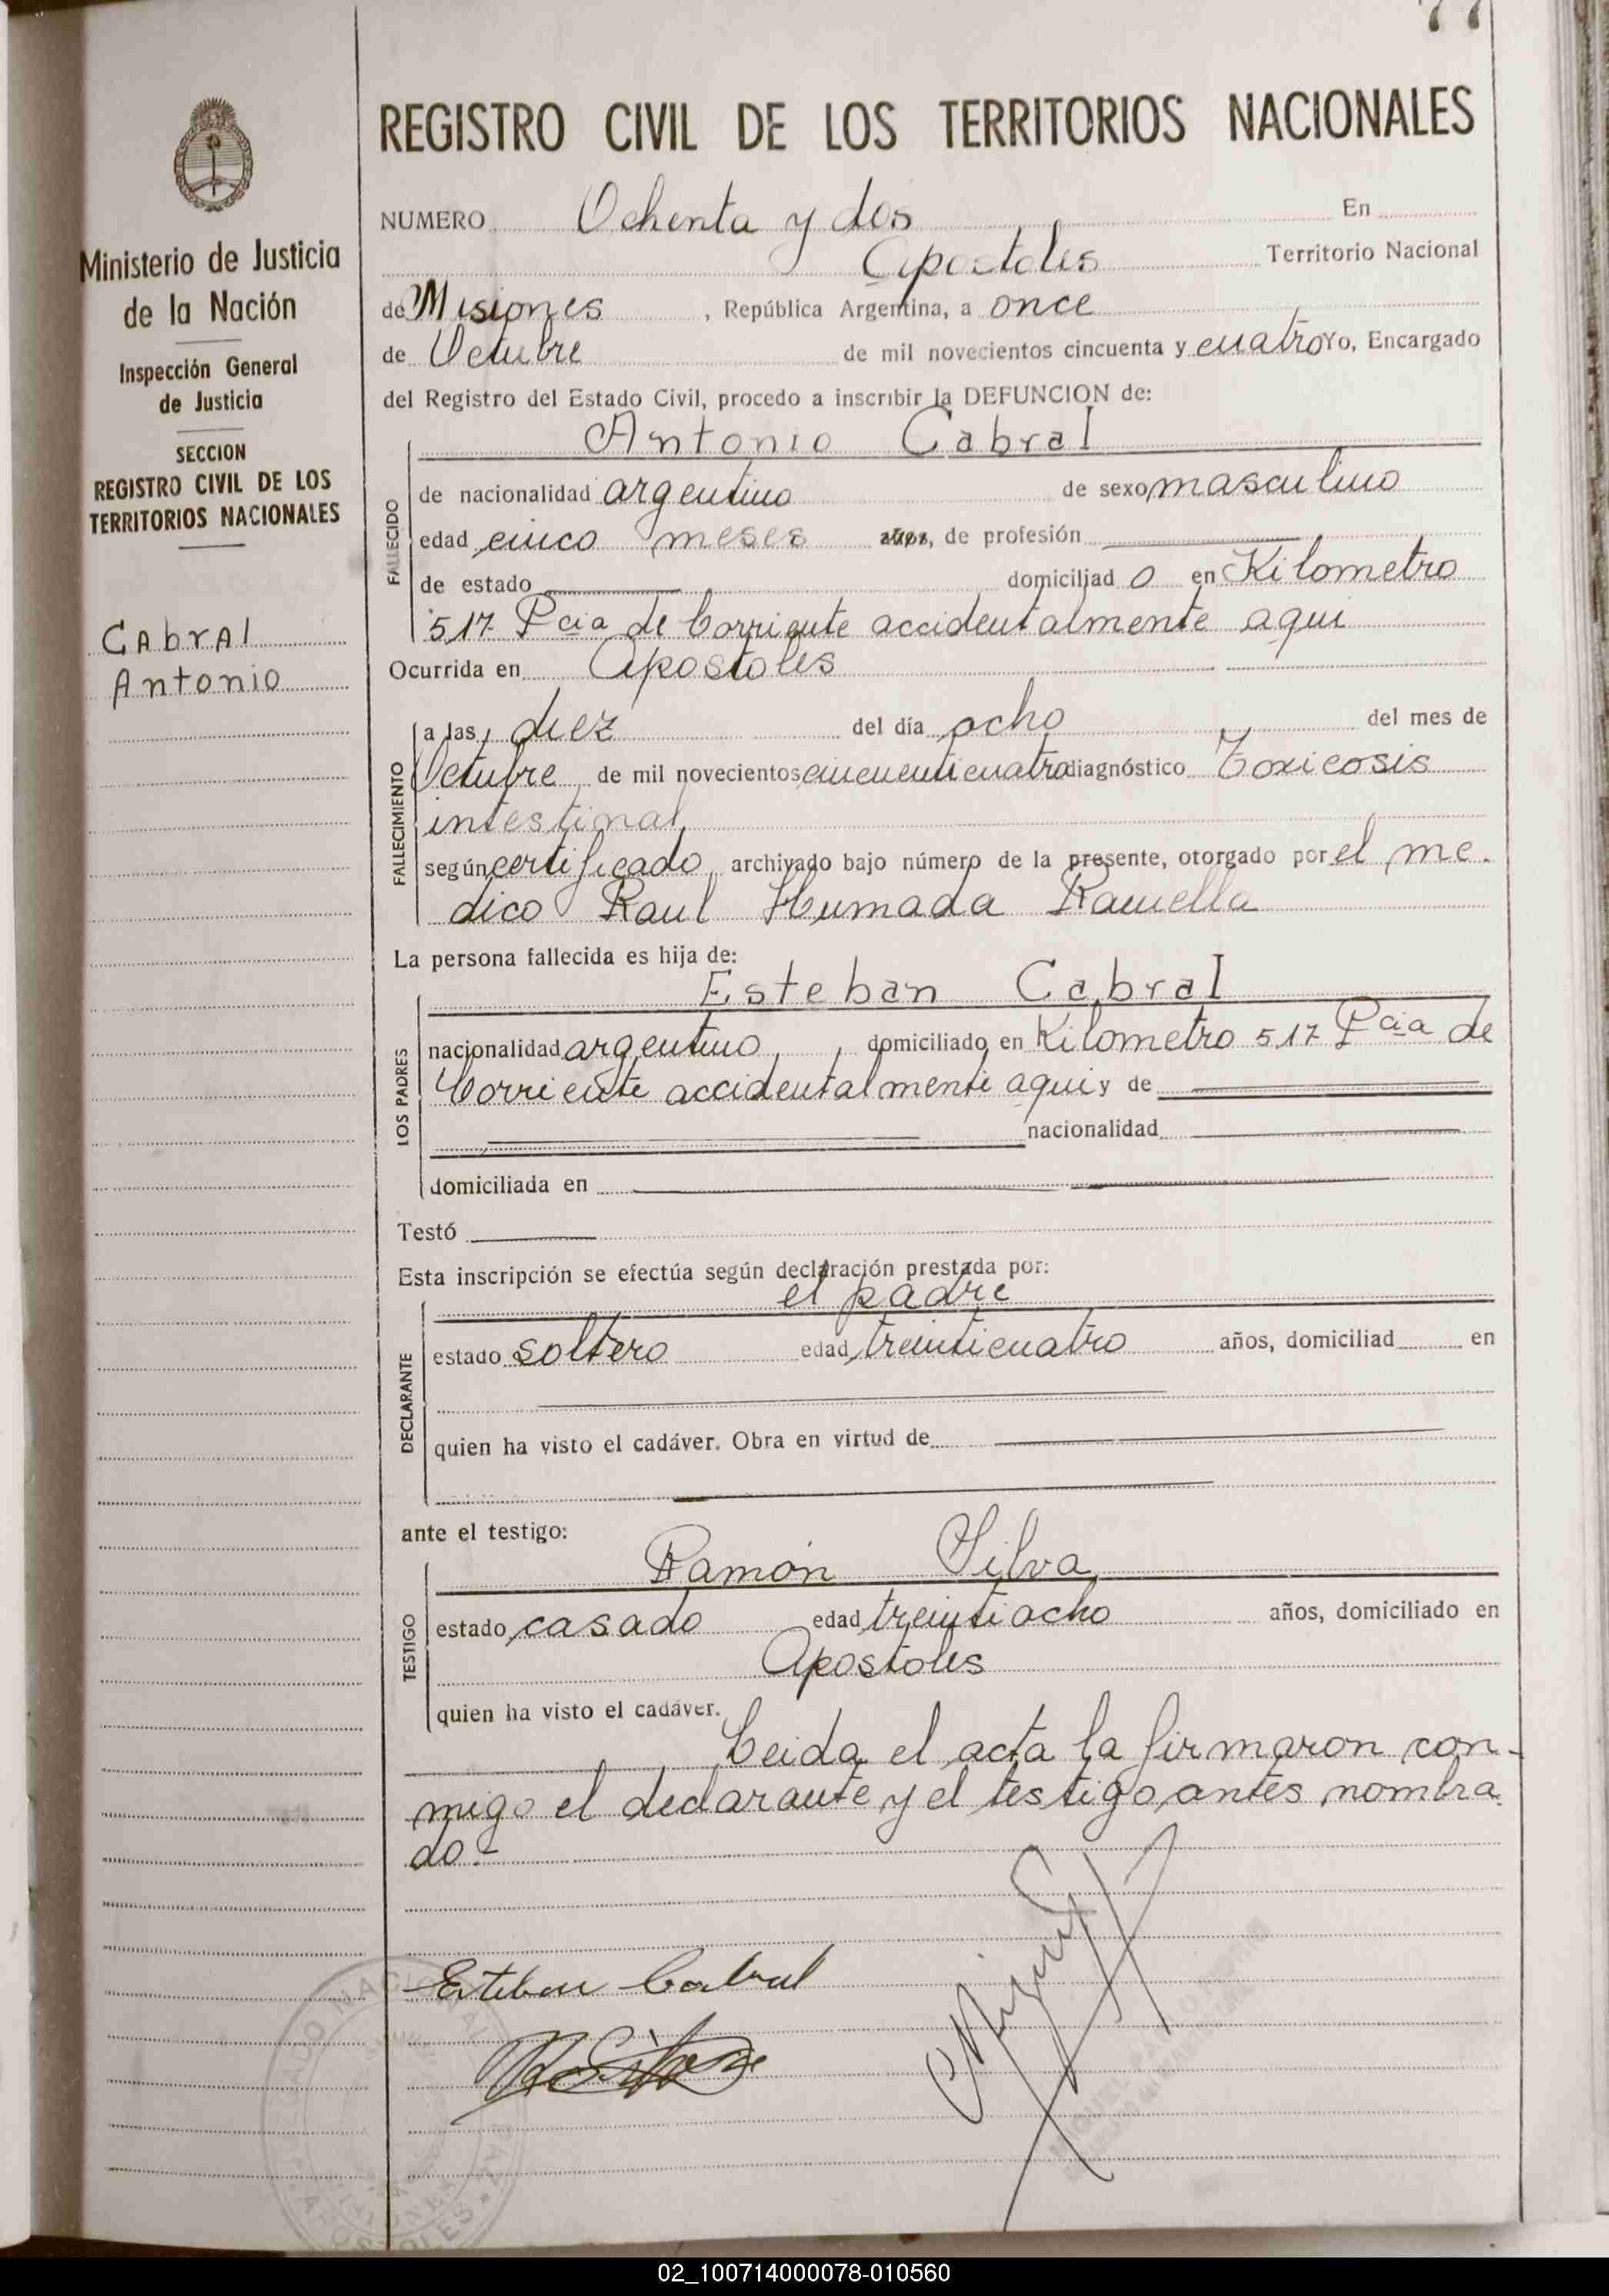 77
REGISTRO CIVIL DE LOS TERRITORIOS NACIONALES
Ministerio de Justicia
de la Nación
Inspección General
de Justicia
SECCION
REGISTRO CIVIL DE LOS
TERRITORIOS NACIONALES
Cabral
Antonio
NUMERO Ochenta y dos En
Apostoles Territorio Nacional
de Misiones, República Argentina, a once
de Octubre de mil novecientos cincuenta y cuatro Yo, Encargado
del Registro del Estado Civil, procedo a inscribir la DEFUNCION de:
Antonio Cabral
FALLECIDO
de nacionalidad argentino de sexo masculino
edad cinco meses años, de profesión
de estado domiciliad o en Kilometro
517 Pcia de Corriente accidentalmente aqui
Ocurrida en Apostoles
FALLECIMIENTO
a las diez del día ocho del mes de
Octubre de mil novecientos cincuenticuatro diagnóstico Toxicosis
intestinal
según certificado archivado bajo número de la presente, otorgado por el me-
dico Raul Humada Ramella
La persona fallecida es hija de:
Esteban Cabral
LOS PADRES
nacionalidad argentino, domiciliado en Kilometro 517 Pcia de
Corriente accidentalmente aqui y de
nacionalidad
domiciliada en
Testó
Esta inscripción se efectúa según declaración prestada por:
el padre
DECLARANTE
estado soltero edad treinticuatro años, domiciliad en
quien ha visto el cadáver. Obra en virtud de
ante el testigo:
Ramón Silva
TESTIGO
estado casado edad treintiocho años, domiciliado en
Apostoles
quien ha visto el cadáver.
Leida el acta la firmaron con-
migo el declarante y el testigo antes nombra
do.-
Esteban Cabral
02_100714000078-010560